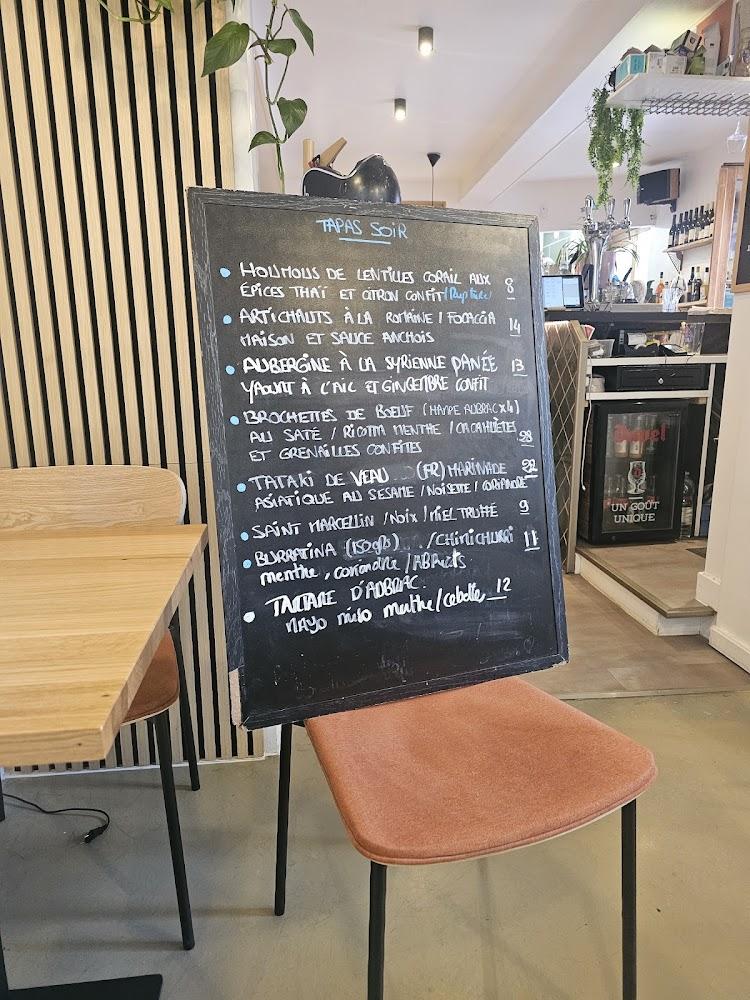 TAPAS SOIR
HOUMOUS DE LENTILLES CORAIL AUX
ÉPICES THAÏ ET CITRON CONFIT 8
ARTICHAUTS À LA ROMAINE / FOCACCIA 14
MAISON ET SAUCE ANCHOIS
AUBERGINE À LA SYRIENNE PANÉE 13
YAOURT À L'AIL ET GINGEMBRE CONFIT
BROCHETTES DE BOEUF (HAMPE AUBRAC x4)
AU SATÉ / RICOTTA MENTHE / CACAHUÈTES
ET GRENAILLES CONFITES 28
TATAKI DE VEAU (FR) MARINADE 22
ASIATIQUE AU SESAME / NOISETTE / CORIANDRE
SAINT MARCELLIN / NOIX / MIEL TRUFFÉ 9
BURRATINA (150grs) / CHIMICHURRI 11
menthe, coriandre / ABRicots
TARTARE D'AUBRAC 12
MAYO miso menthe / cebette
Duvel
UN GOÛT
UNIQUE